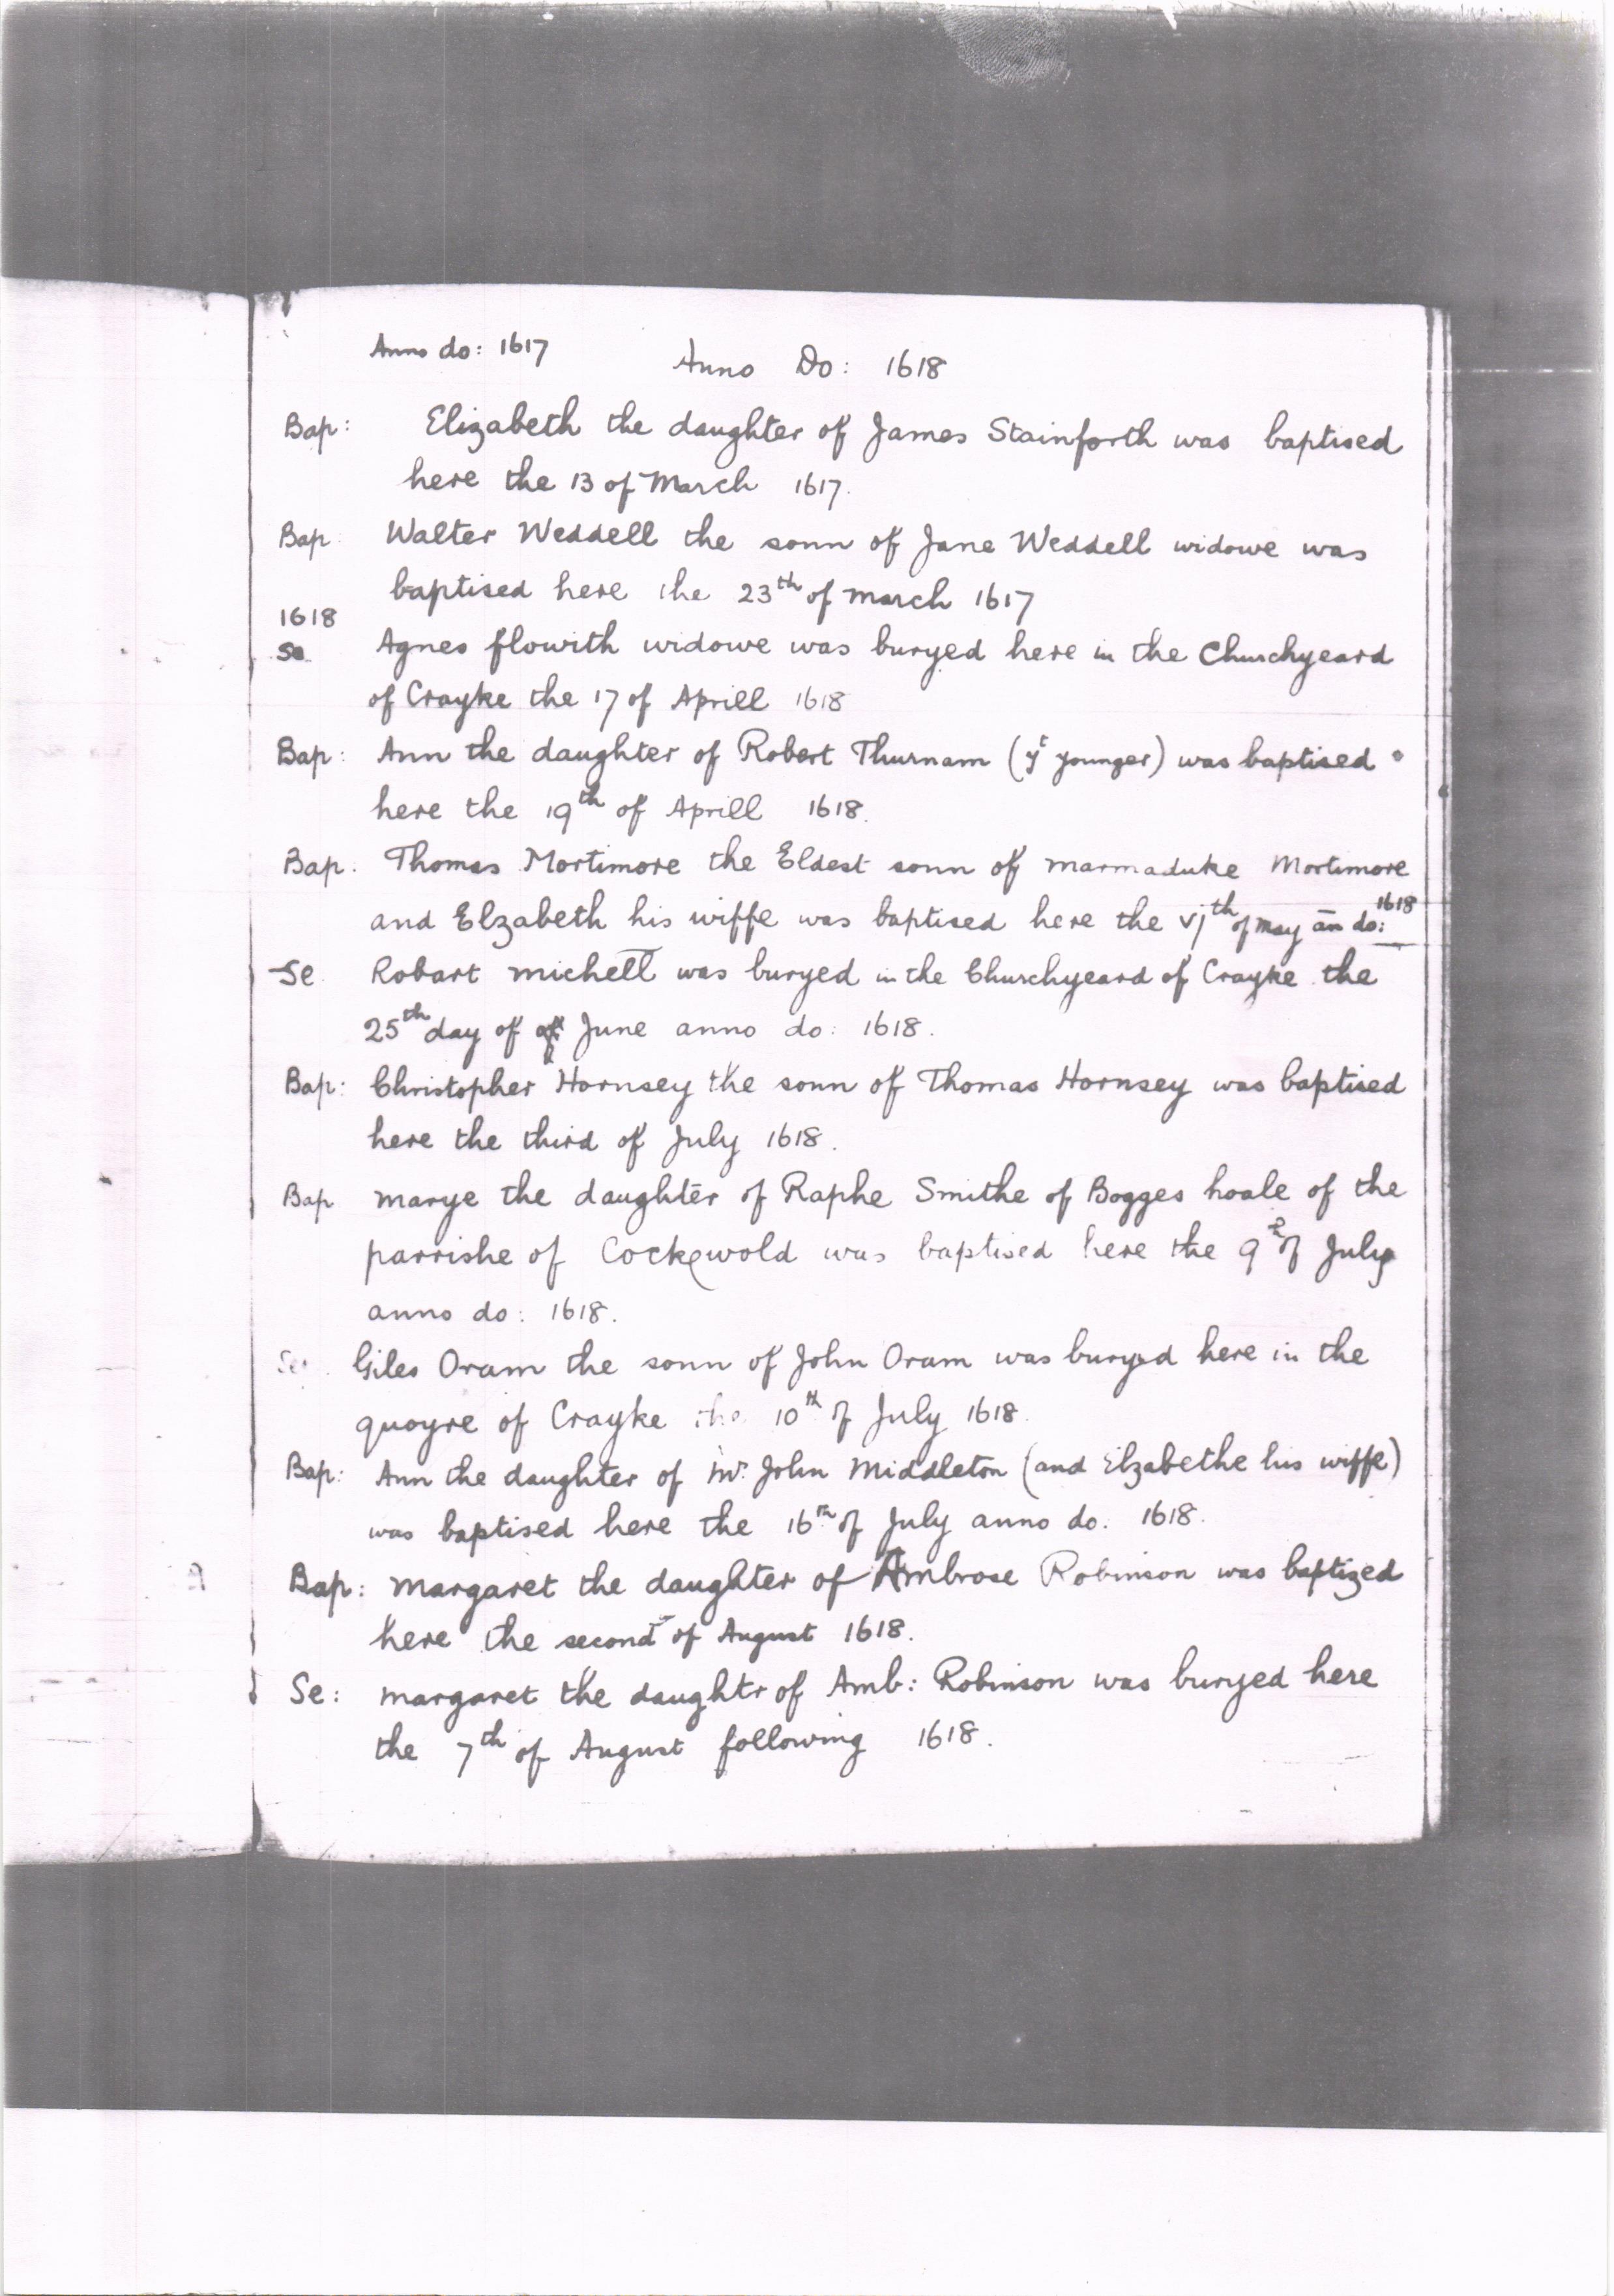 Anno do: 1617 Anno Do: 1618
Bap: Elizabeth the daughter of James Stainforth was baptised
here the 13 of March 1617.
Bap: Walter Weddell the sonn of Jane Weddell widowe was
baptised here the 23th of march 1617
1618
Se Agnes flowith widowe was buryed here in the Churchyeard
of Crayke the 17 of Aprill 1618
Bap: Ann the daughter of Robert Thurnam (ye younger) was baptised
here the 19th of Aprill 1618.
Bap. Thomas Mortimore the Eldest sonn of marmaduke Mortimore
and Elzabeth his wiffe was baptised here the vjth of may an do: 1618
Se Robart michell was buryed in the Churchyeard of Crayke the
25th day of of June anno do: 1618.
Bap: Christopher Hornsey the sonn of Thomas Hornsey was baptised
here the third of July 1618.
Bap marye the daughter of Raphe Smithe of Bogges hoale of the
parrishe of Cockewold was baptised here the 9 of July
anno do: 1618.
Se. Giles Oram the sonn of John Oram was buryed here in the
quoyre of Crayke the 10th of July 1618.
Bap: Ann the daughter of Mr John Middleton (and Elzabethe his wiffe)
was baptised here the 16th of July anno do. 1618.
Bap: Margaret the daughter of Ambrose Robinson was baptized
here the second of August 1618.
Se: margaret the daughtr of Amb: Robinson was buryed here
the 7th of August following 1618.